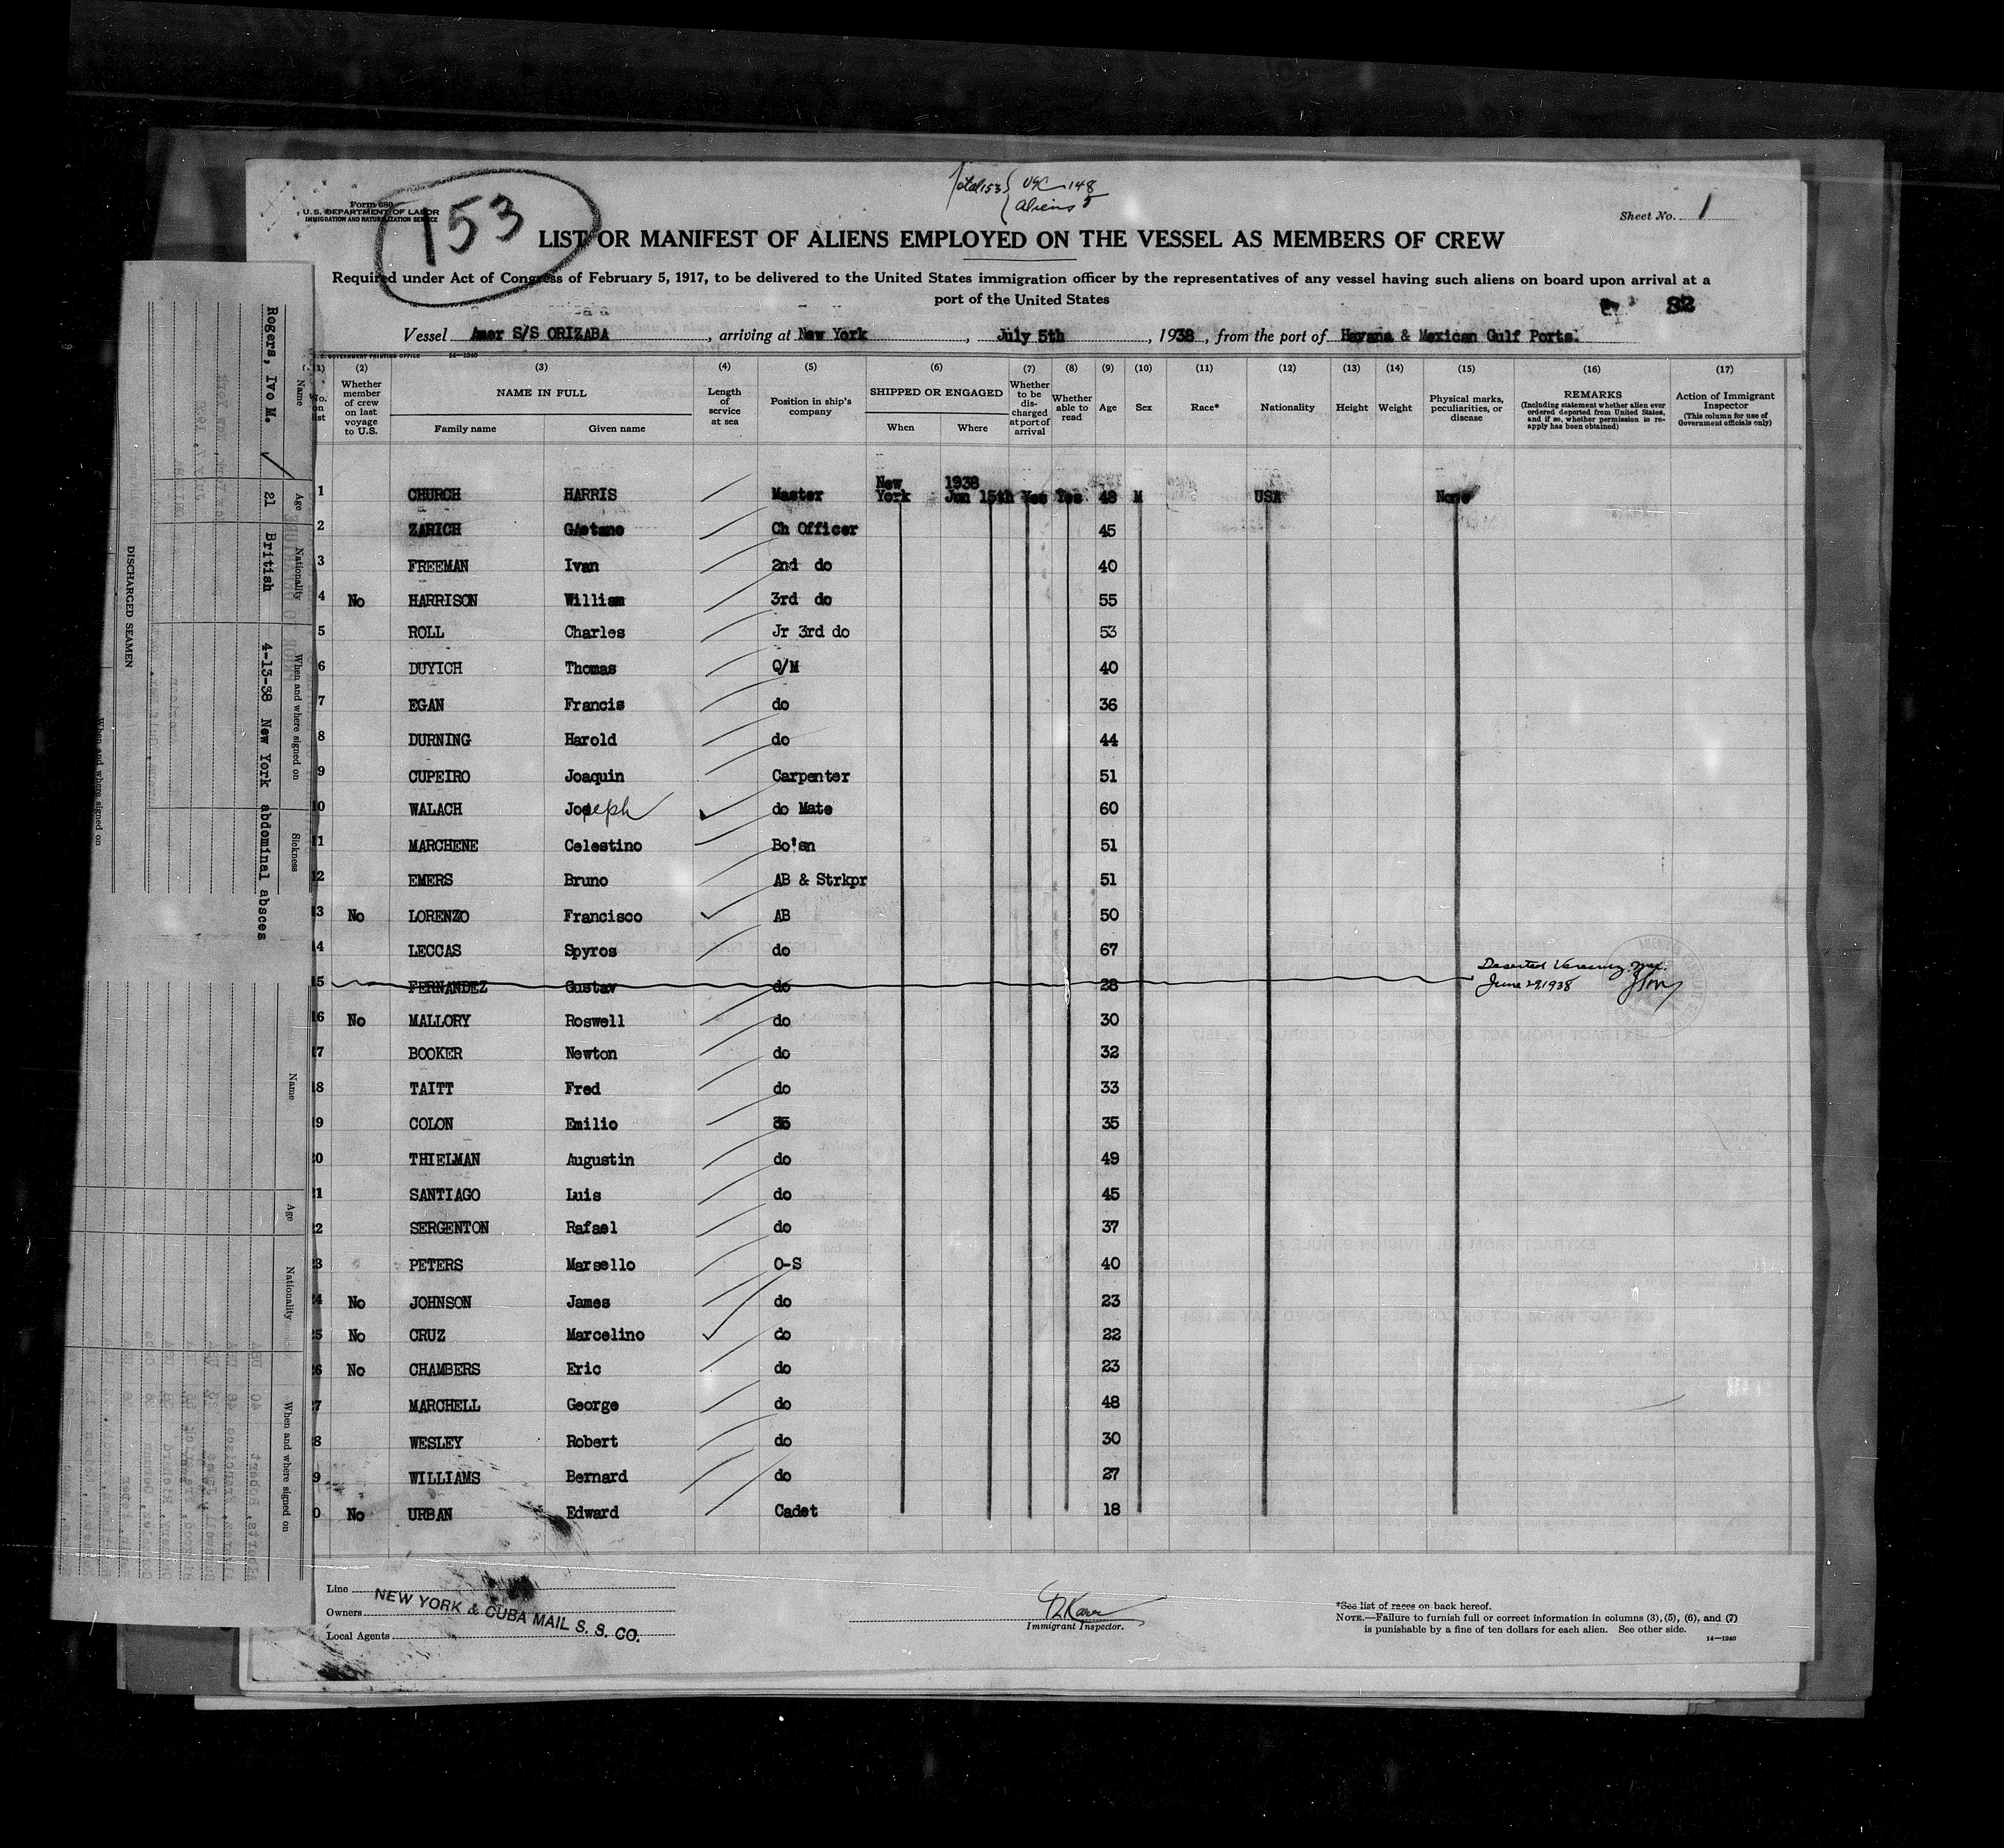 Total 153 { USC 148
aliens 5
Form 680
U.S. DEPARTMENT OF LABOR
IMMIGRATION AND NATURALIZATION SERVICE
153
Sheet No. 1
LIST OR MANIFEST OF ALIENS EMPLOYED ON THE VESSEL AS MEMBERS OF CREW
Required under Act of Congress of February 5, 1917, to be delivered to the United States immigration officer by the representatives of any vessel having such aliens on board upon arrival at a
port of the United States
82
Vessel Amer S/S ORIZABA, arriving at New York, July 5th, 1938, from the port of Havana & Mexican Gulf Ports.
GOVERNMENT PRINTING OFFICE 14—1240
(1) (2) (3) (4) (5) (6) (7) (8) (9) (10) (11) (12) (13) (14) (15) (16) (17)
No. on list
Whether member of crew on last voyage to U.S.
NAME IN FULL
Family name Given name
Length of service at sea
Position in ship's company
SHIPPED OR ENGAGED
When Where
Whether to be discharged at port of arrival
Whether able to read
Age Sex Race* Nationality Height Weight
Physical marks, peculiarities, or disease
REMARKS
(Including statement whether alien ever ordered deported from United States, and if so, whether permission to reapply has been obtained)
Action of Immigrant Inspector
(This column for use of Government officials only)
1 CHURCH HARRIS Master New York 1938 Jun 15th Yes Yes 48 M USA None
2 ZARICH GAetano Ch Officer 45
3 FREEMAN Ivan 2nd do 40
4 No HARRISON William 3rd do 55
5 ROLL Charles Jr 3rd do 53
6 DUYICH Thomas Q/M 40
7 EGAN Francis do 36
8 DURNING Harold do 44
9 CUPEIRO Joaquin Carpenter 51
10 WALACH Joseph do Mate 60
11 MARCHENE Celestino Bo'sn 51
12 EMERS Bruno AB & Strkpr 51
13 No LORENZO Francisco AB 50
14 LECCAS Spyros do 67
15 FERNANDEZ Gustav do 28 Deserted Veracruz, Mex.
June 29 1938
16 No MALLORY Roswell do 30
17 BOOKER Newton do 32
18 TAITT Fred do 33
19 COLON Emilio do 35
20 THIELMAN Augustin do 49
21 SANTIAGO Luis do 45
22 SERGENTON Rafael do 37
23 PETERS Marsello O-S 40
24 No JOHNSON James do 23
25 No CRUZ Marcelino do 22
26 No CHAMBERS Eric do 23
27 MARCHELL George do 48
28 WESLEY Robert do 30
29 WILLIAMS Bernard do 27
30 No URBAN Edward Cadet 18
Line
Owners
Local Agents
NEW YORK & CUBA MAIL S. S. CO.
Immigrant Inspector.
*See list of races on back hereof.
NOTE.—Failure to furnish full or correct information in columns (3), (5), (6), and (7)
is punishable by a fine of ten dollars for each alien. See other side.
14—1240
Name Age Nationality When and where signed on Sickness
Rogers, Ivo M. 21 British 4-13-38 New York abdominal absces
DISCHARGED SEAMEN
When and where signed on
Name Age Nationality When and where signed on